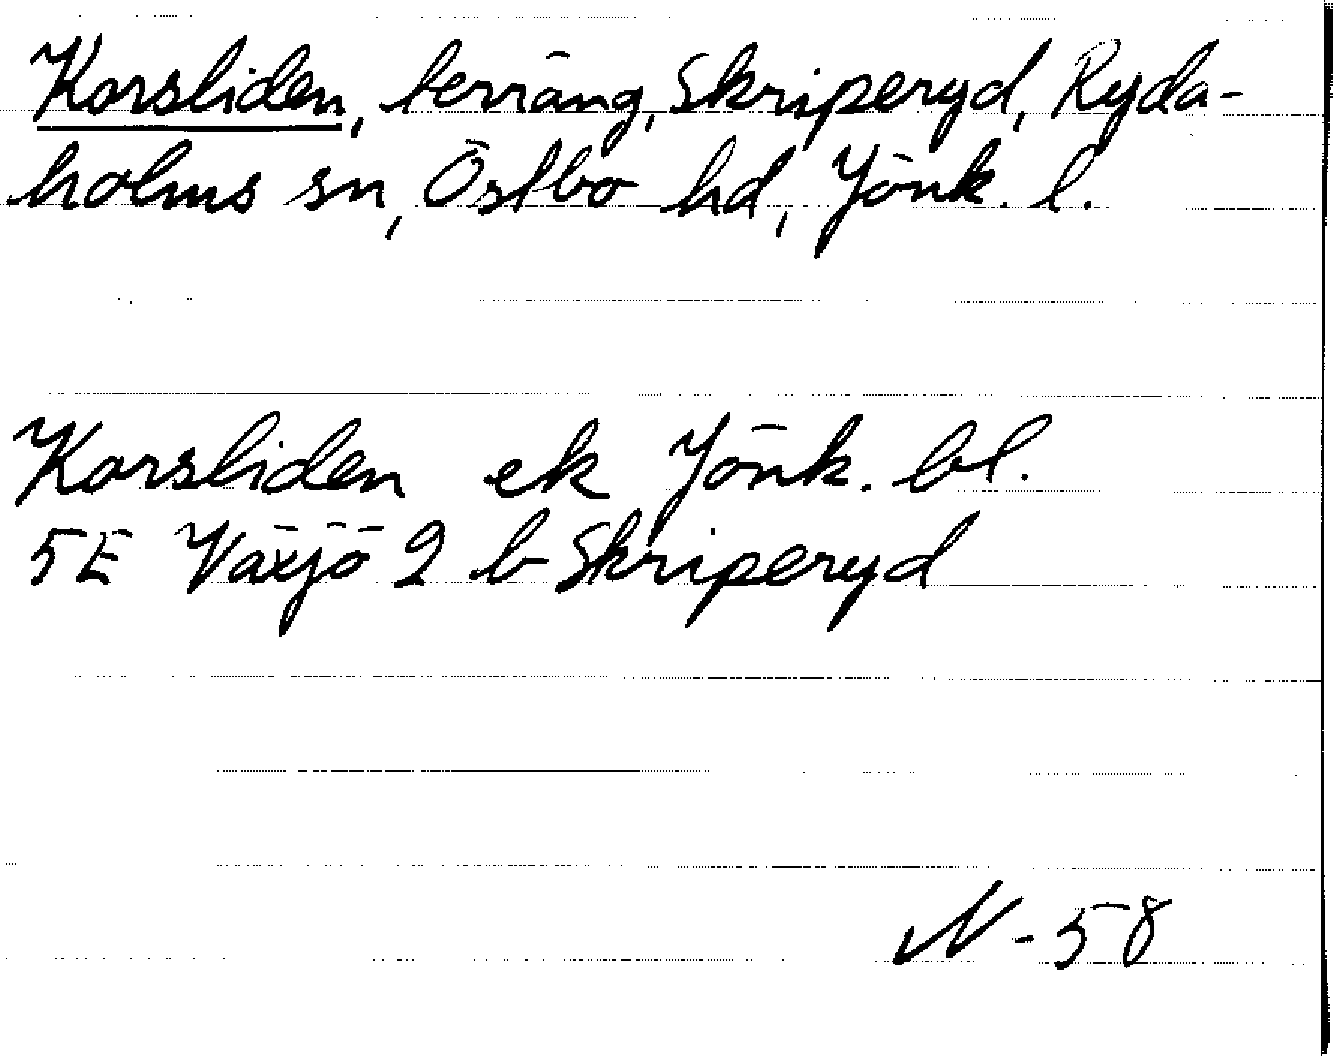 Korsliden, terräng, Skriperyd, Ryda-
holms sn, Östbo hd, Jönk. l.
Korsliden ek Jönk. bl.
5E Växjö 2 b Skriperyd
N-58